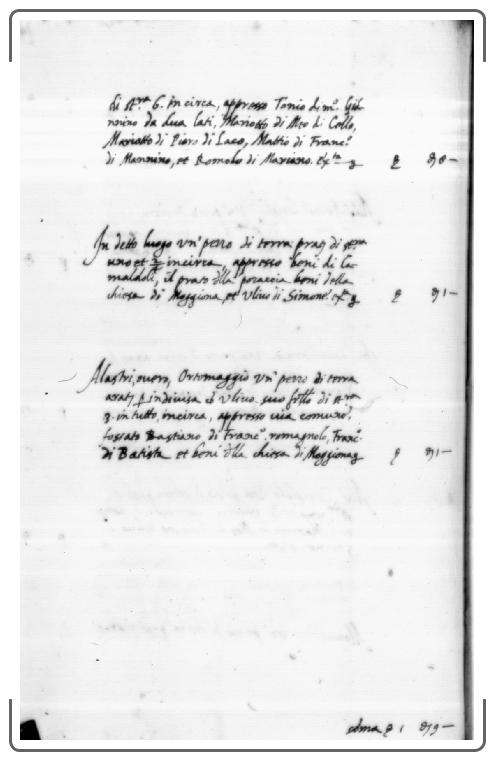 di st.ra 6. in circa, appresso Tonio di m.o Gil
nnino da dua lati, Mariotto di Meo di Collo,
Mariotto di Piero di Laco, Mattio di Franc.o
di Mannino, et Romolo di Mariano.
In detto luogo un' pezzo di terra prat. di st.ra
uno et incirca, appresso beni di Ca
maldoli, il prato della pozaccia beni della
chiesa di Moggiona, et Ulivo di Simone.
Alastri, overo, Ortomaggio un' pezzo di terra
p indivisa Ulivo suo di st.ra
3. in tutto, incirca, appresso via comune,
fossato Bastiano di Franc.o romagnolo, Franc.o
di Batista et beni della chiesa di Moggiona